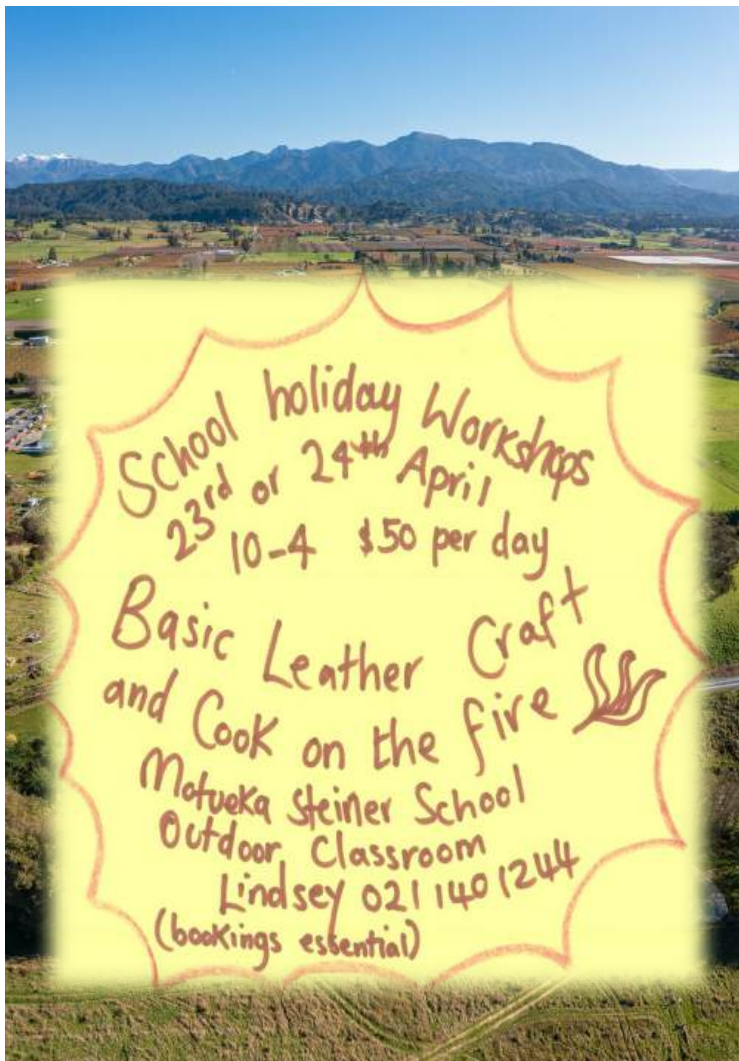 School holiday Workshops
23rd or 24th April
10-4 $50 per day
Basic Leather Craft
and Cook on the fire
Motueka Steiner School
Outdoor Classroom
Lindsey 021 140 1244
(bookings essential)